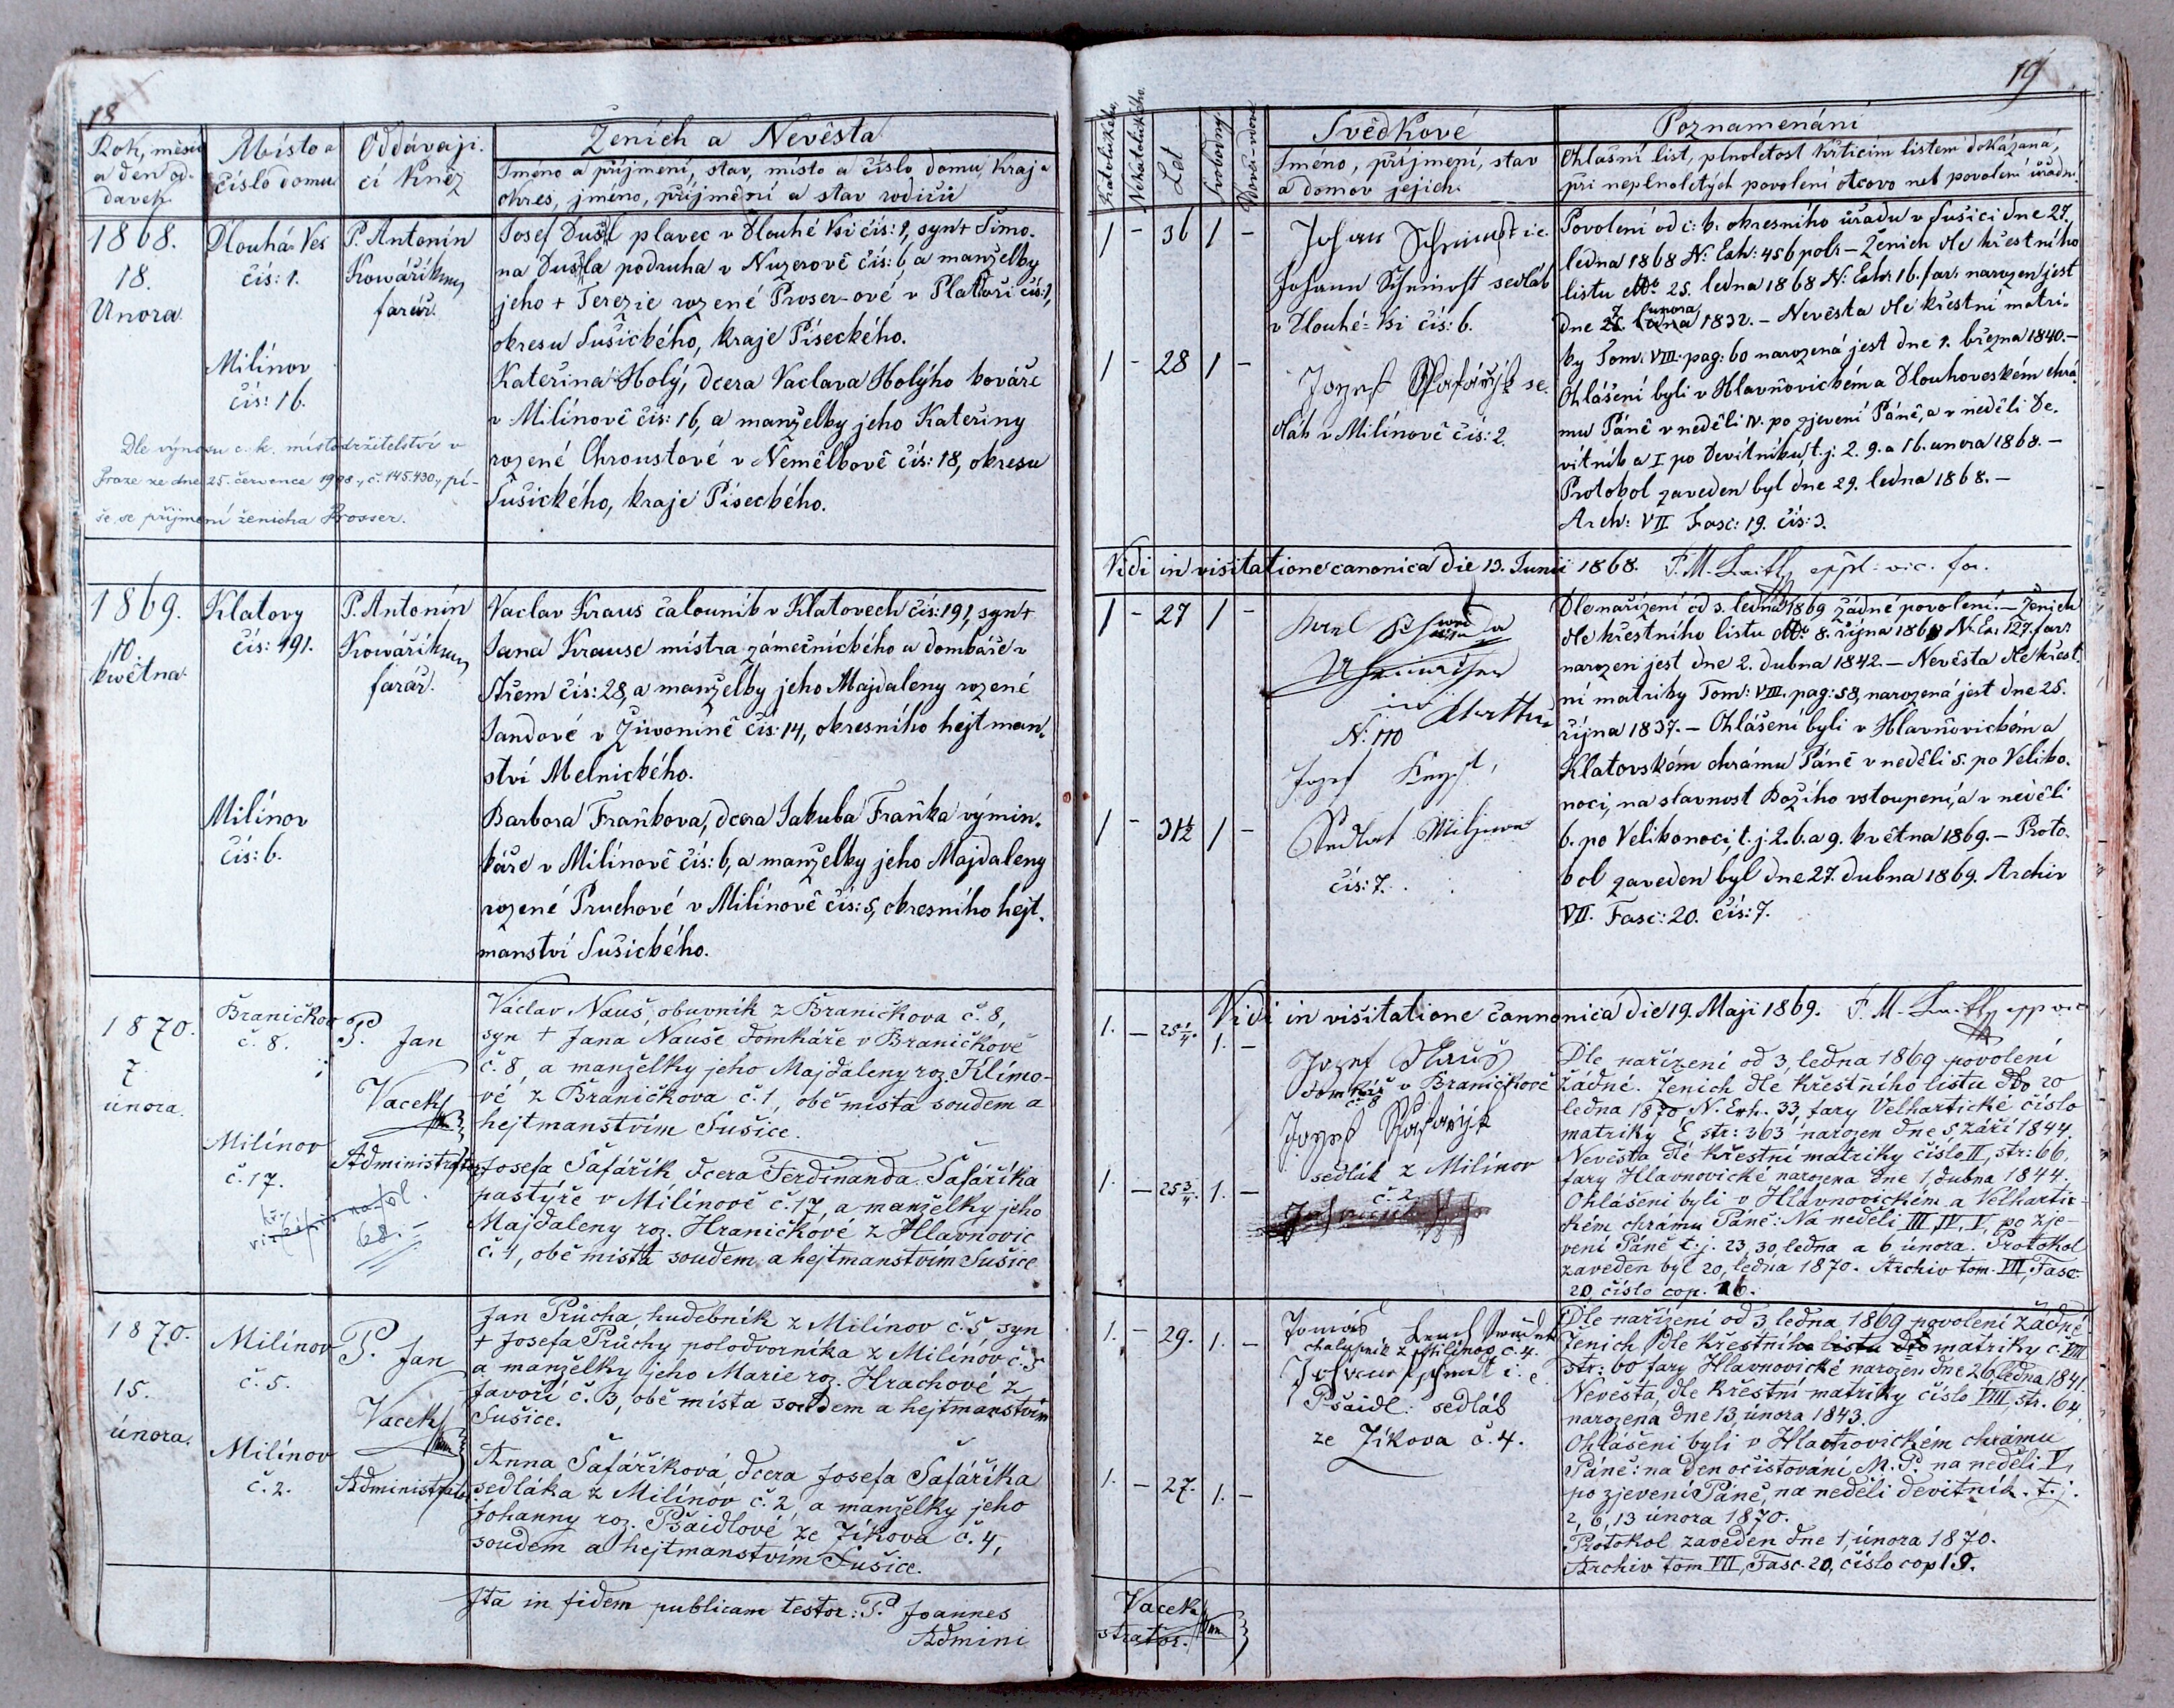 18
Rok, měsíc
a den od-
davek
Místo a
číslo domu
Oddávají-
cí kněz
Ženich a Nevěsta
Jméno a příjmení, stav, místo a číslo domu, kraj a
okres, jméno, příjmění a stav rodičů
1868.
18.
Února.
Dlouhá Ves
čís: 1.
Milínov
čís: 16.
P. Antonín
Kowářík
farář.
Josef Dušl plavec v Dlouhé Vsi čís: 1, syn + Šimo-
na Dušla podruha v Nuzerově čís: 6, a manželky
jeho + Terezie rozené Proser-ové v Platoři čís: 1,
okresu Sušického, kraje Píseckého.
Kateřina Holý, dcera Vaclava Holýho kováře
v Milínově čís: 16, a manželky jeho Kateřiny
rozené Chroustové v Nemělkově čís: 18, okresu
Sušického, kraje Píseckého.
Dle výnosu c. k. místodržitelství v
Praze ze dne 25. července 1908, č. 145.430, pí-
še se příjmení ženicha Prosser.
1869.
10.
května.
Klatovy
čís: 191.
Milínov
čís: 6.
P. Antonín
Kowářík
farář.
Vaclav Kraus čalouník v Klatovech čís: 191, syn +
Jana Krause místra zámečnického a domkáře v
čís: 28, a manželky jeho Majdaleny rozené
Sandové v Živoníně čís: 14, okresního hejtman-
ství Melnického.
Barbora Fraňkova, dcera Jakuba Fraňka výmin-
káře v Milínově čís: 6, a manželky jeho Majdaleny
rozené Pruchové v Milínově čís: 5, okresního hejt-
manství Sušického.
1870.
7.
února.
Braničkov
č. 8.
Milínov
č. 17.
P. Jan
Vacek
Administrátor
68.
Václav Nauš, obuvník z Braničkova č. 8,
syn + Jana Nauše domkáře v Braničkově
č. 8, a manželky jeho Majdaleny roz. Klímo-
vé z Braničkova č. 1, obě místa soudem a
hejtmanstvím Sušice.
Josefa Šafářík dcera Ferdinanda Šafáříka
pastýře v Milínově č. 17, a manželky jeho
Majdaleny roz. Hraničkové z Hlavnovic
č. 4, obě místa soudem a hejtmanstvím Sušice
1870.
15.
února.
Milínov
č. 5.
Milínov
č. 2.
P. Jan
Vacek
Administrátor
Jan Průcha, hudebník z Milínov č. 5, syn
+ Josefa Průchy polodvorníka z Milínov č. 5
a manželky jeho Marie roz. Hrachové z
Javoří č. 3, obě místa soudem a hejtmanstvím
Sušice.
Anna Šafáříková, dcera Josefa Šafáříka
sedláka z Milínov č. 2, a manželky jeho
Johanny roz. Pšaidlové ze Jíkova č. 4,
soudem a hejtmanstvím Sušice.
Ita in fidem publicam testor: P. Joannes
Admini
19
Katolického
Nekatolického
Let
Svobodný
Vdovec-vdova
Svědkové
Jméno, příjmení, stav
a domov jejich
Poznamenání
Ohlašní list, plnoletost křticím listem dokázaná,
při neplnoletých povolení otcovo neb povolení úřadní.
1 - 36 1 -
Johann Schreinost i.e.
Johann Schreinost sedlák
v Dlouhé Vsi čís: 6.
1 - 28 1 -
Jozef Šafařjk se-
dlák v Milínově čís: 2.
Povolení od c: k. okresního úřadu v Sušici dne 27.
ledna 1868 N: Exh: 456 polt - Ženich dle křestního
listu ddo 25. ledna 1868 N: Exh: 16. far: narozen jest
dne 7. února 1832. - Nevěsta dle křestní matri-
ky Tom: VIII. pag: 60 narozená jest dne 1. března 1840. -
Ohlášení byli v Hlavňovickém a Dlouhoveském chrá-
mu Páně v neděli IV. po zjevení Páně, a v neděli De-
vítník a I po Devítníku, t. j: 2. 9. a 16. unora 1868. -
Protokol zaveden byl dne 29. ledna 1868. -
Arch: VII Fasc: 19. čís: 3.
Vidi in visitatione canonica die 13. Junii 1868.
1 - 27 1 -
N: 110
1 - 31½ 1 -
čís: 7.
Dle nařízení od 3. ledna 1869 žádné povolení. - Ženich
dle křestního listu ddo 8. října 1868 N: Ex: 127. far:
narozen jest dne 2. dubna 1842. - Nevěsta dle křest-
ní matriky Tom: VIII. pag: 58, narozená jest dne 25.
října 1837. - Ohlášení byli v Hlavňovickém a
Klatovském chrámu Páně v neděli 5. po Veliko-
noci, na slavnost Božího vstoupení, a v neděli
6. po Velikonoci, t. j. 2. 6. a 9. května 1869. - Proto-
kol zaveden byl dne 27. dubna 1869. Archiv
VII. Fasc: 20. čís: 7.
Vidi in visitatione cannonica die 19. Maji 1869.
1. - 25¼. 1. -
Jozef Nauš
domkář v Braničkově
č. 8
Jozef Šafařjk
sedlák z Milínov
č. 2
1. - 25¾ 1. -
Dle nařízení od 3, ledna 1869 povolení
žádné. Ženich dle křestního listu ddo 20
ledna 1870 N. Exh. 33, fary Velhartické číslo
matriky E str: 363 narozen dne 5 září 1844.
Nevěsta dle křestní matriky číslo II, str: 66,
fary Hlavnovické narozena dne 1, dubna 1844.
Ohlášeni byli v Hlavnovickém a Velhartic-
kém chrámu Páně: Na neděli III, IV, V, po zje-
vení Páně t. j. 23, 30, ledna a 6 února. Protokol
zaveden byl 20, ledna 1870. Archiv tom. VII, Fasc.
20 číslo cop. 16.
1. - 29. 1. -
Tomáš
chalupník z Milínov č. 4.
Pšaidl: sedlák
ze Jíkova č. 4.
1. - 27. 1. -
Dle nařízení od 3 ledna 1869 povolení žádné.
Ženich dle křestního listu ddo matriky č. VIII
str: 60 fary Hlavnovické narozen dne 26, ledna 1841.
Nevěsta, dle křestní matriky číslo VIII, str. 64,
narozena dne 13, února 1843.
Ohlášeni byli v Hlavnovickém chrámu
Páně: na den očistování M. P. na neděli V,
po zjevení Páně, na neděli devítník. t. j.
2, 6, 13 února 1870.
Protokol zaveden dne 1, února 1870.
Archiv tom VII, Fasc. 20, číslo cop 19.
Vacek
strator.